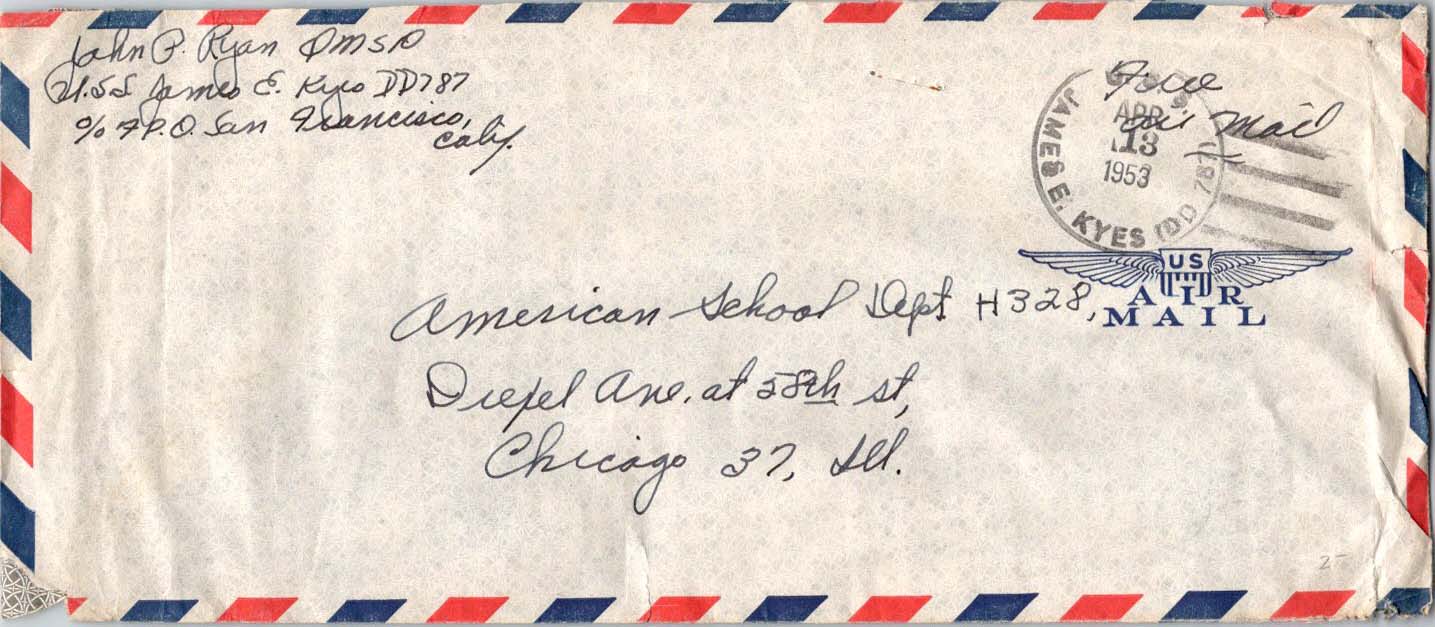 John P. Ryan QMSN
U.S.S James E. Kyes DD787
c/o F.P.O. San Francisco,
Calif.
Free
Air Mail
U.S.S.
JAMES E. KYES (DD 787)
APR
13
1953
US
AIR
MAIL
American School Dept H328,
Drexel Ave. at 58th st,
Chicago 37, Ill.
2-